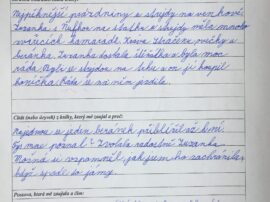 Nejpěknější prázdniny u strýdy na venkově.
Zuzanka s Pufkou na statku u strýdy měla mnoho
zvířecích kamarádů. Krávu Stračenu, ovečky a
beránka. Zuzanka dostala štěňátko a byla moc
ráda. Byli se strýdou na trhu a on jí koupil
koníčka. Ráda se na něm jezdila.
Citát (nebo úryvek) z knihy, který mě zaujal a proč:
Najednou se jeden beránek přiblížil až k ní.
Ty mas poznal? Zvolala radostně Zuzanka.
Možná si vzpomněl, jak jsem ho zachránila,
když spadl do jámy.
Postava, která mě zaujala a čím: